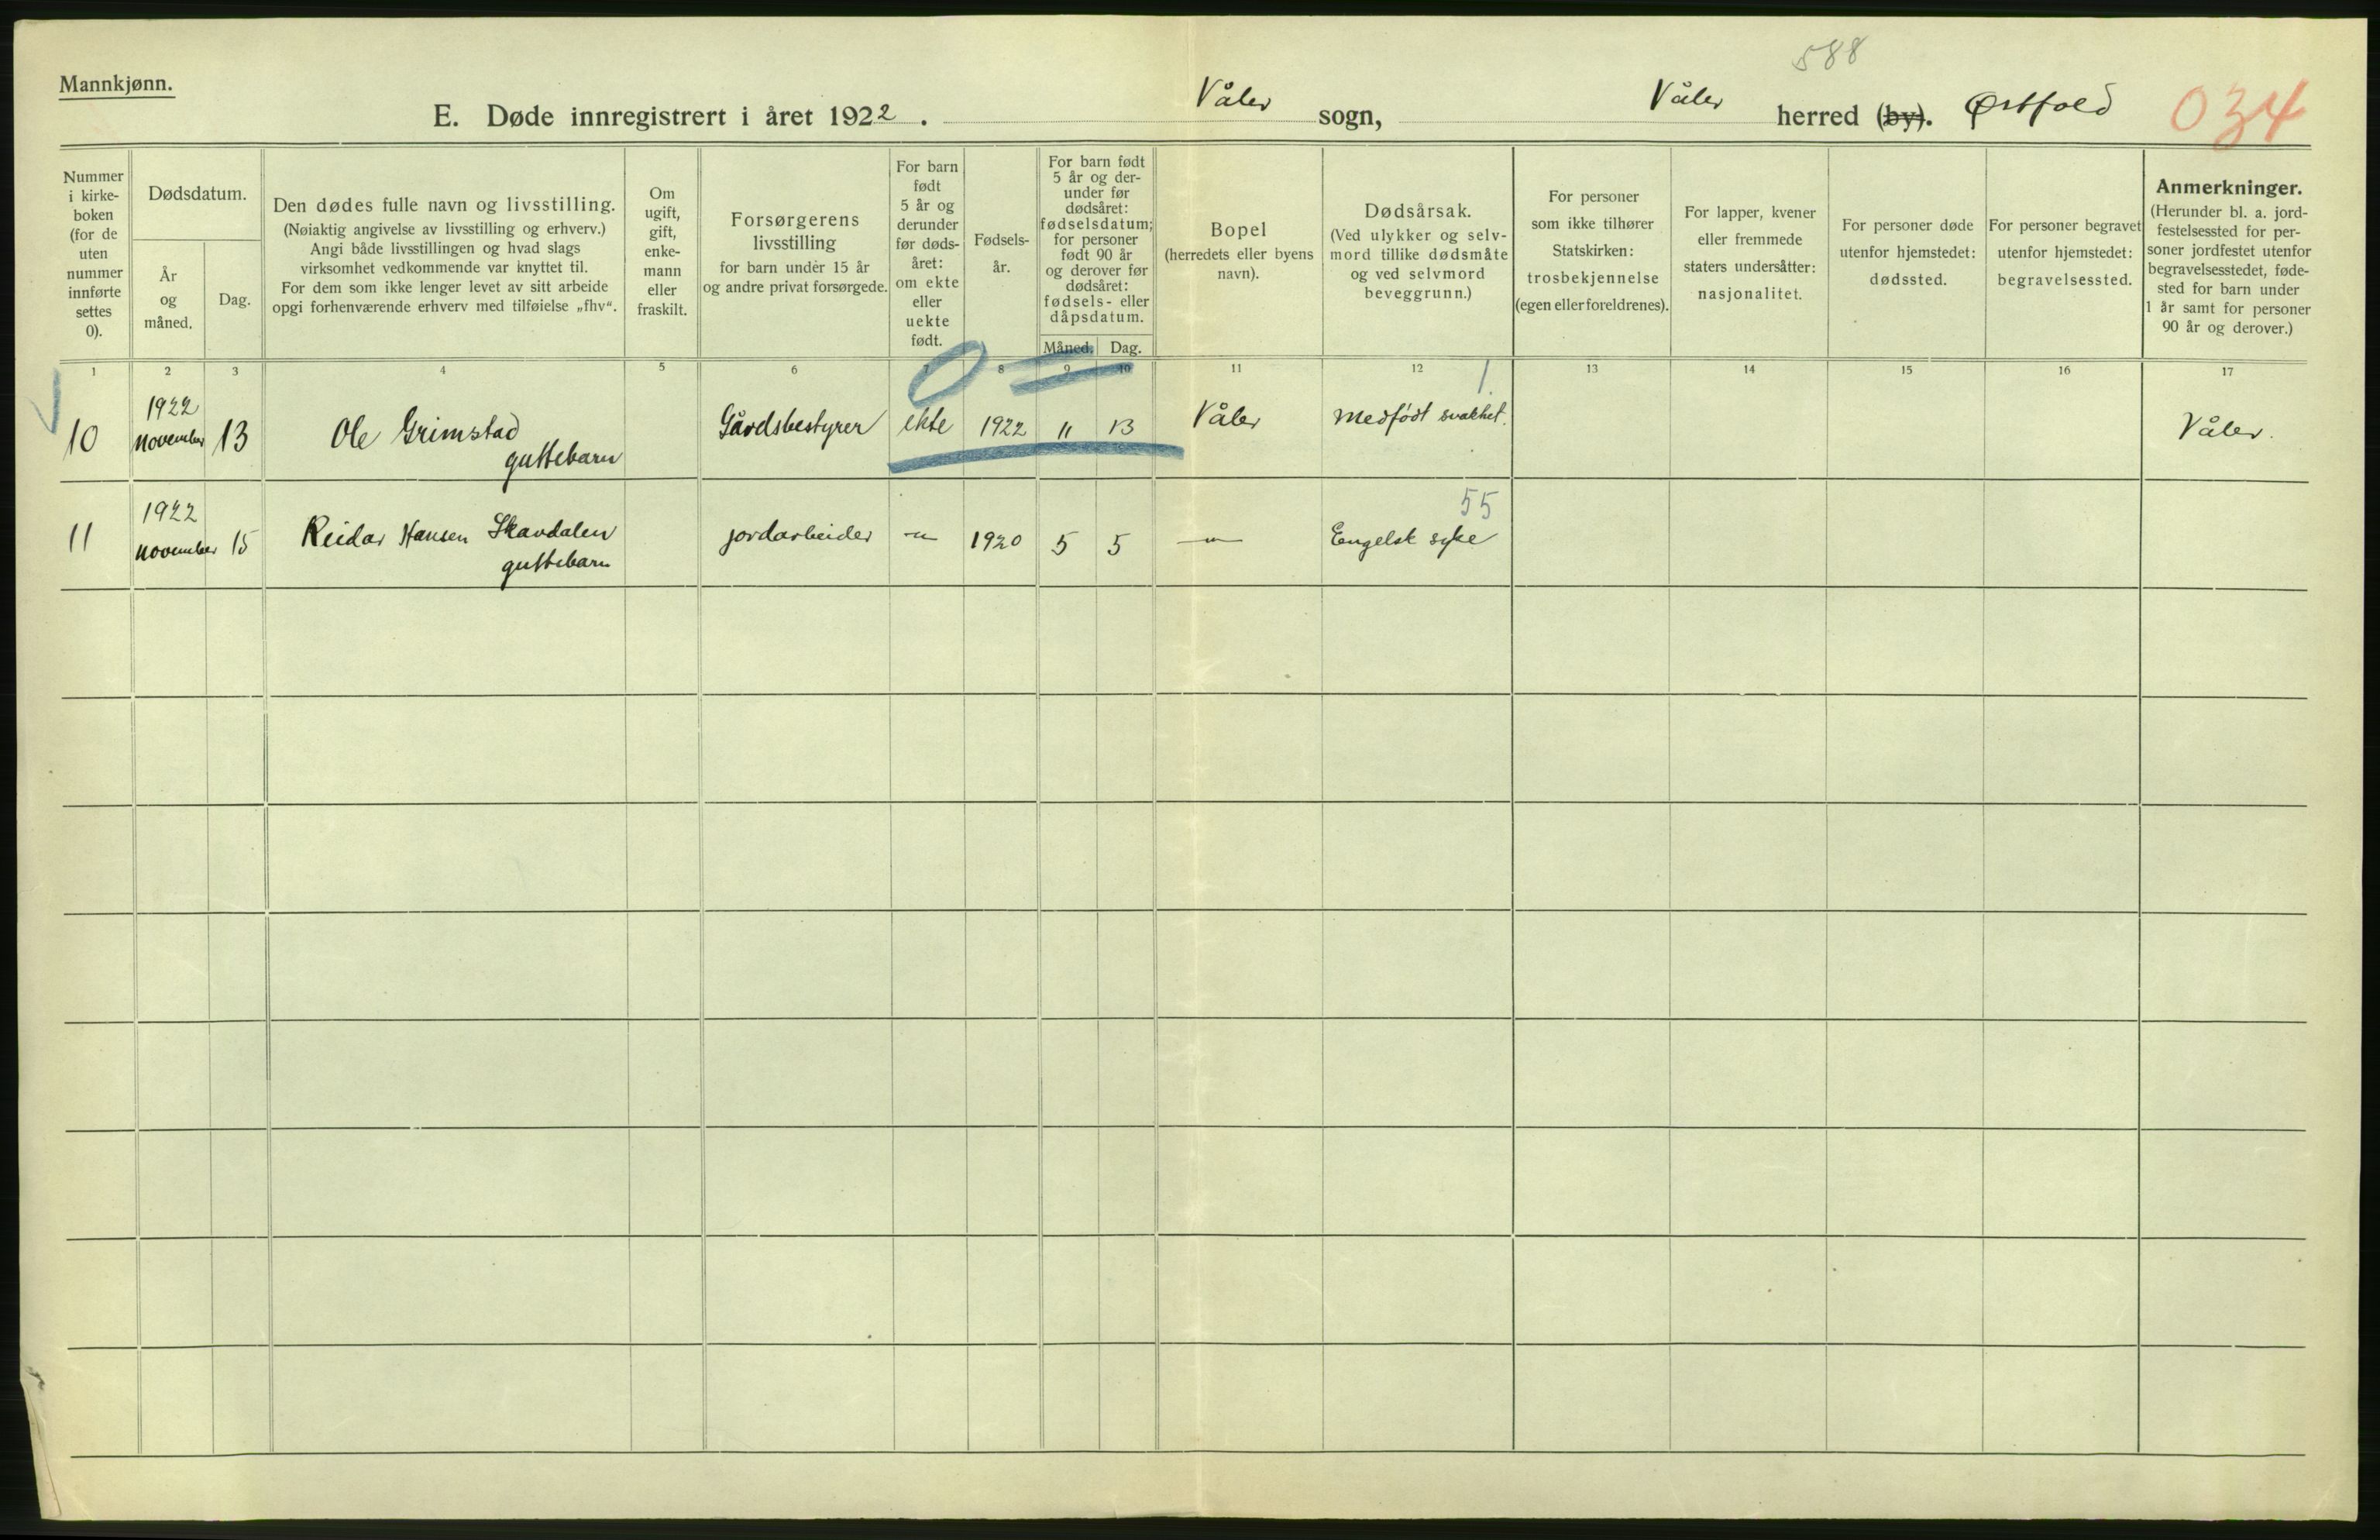 588
Mannkjønn.
E. Døde innregistrert i året 1922. Våler sogn, Våler herred (by). Østfold 034
Nummer i kirke-
boken
(for de
uten
nummer
innførte
settes
0).
Dødsdatum.
År
og
måned.
Dag.
Den dødes fulle navn og livsstilling.
(Nøiaktig angivelse av livsstilling og erhverv.)
Angi både livsstillingen og hvad slags
virksomhet vedkommende var knyttet til.
For dem som ikke lenger levet av sitt arbeide
opgi forhenværende erhverv med tilføielse „fhv“.
Om
ugift,
gift,
enke-
mann
eller
fraskilt.
Forsørgerens
livsstilling
for barn under 15 år
og andre privat forsørgede.
For barn
født
5 år og
derunder
før døds-
året:
om ekte
eller
uekte
født.
Fødsels-
år.
For barn født
5 år og der-
under før
dødsåret:
fødselsdatum;
for personer
født 90 år
og derover før
dødsåret:
fødsels- eller
dåpsdatum.
Måned. Dag.
Bopel
(herredets eller byens
navn).
Dødsårsak.
(Ved ulykker og selv-
mord tillike dødsmåte
og ved selvmord
beveggrunn.)
For personer
som ikke tilhører
Statskirken:
trosbekjennelse
(egen eller foreldrenes).
For lapper, kvener
eller fremmede
staters undersåtter:
nasjonalitet.
For personer døde
utenfor hjemstedet:
dødssted.
For personer begravet
utenfor hjemstedet:
begravelsessted.
Anmerkninger.
(Herunder bl. a. jord-
festelsessted for per-
soner jordfestet utenfor
begravelsesstedet, føde-
sted for barn under
1 år samt for personer
90 år og derover.)
1 2 3 4 5 6 7 8 9 10 11 12 13 14 15 16 17
0 = 1.
1922
10 november 13 Ole Grimstad Gårdsbestyrer ekte 1922 11 13 Våler Medfödt svakhet. Våler.
guttebarn
1922 55
11 november 15 Reidar Hansen Skavdalen jordarbeider -"- 1920 5 5 -"- Engelsk syke
guttebarn